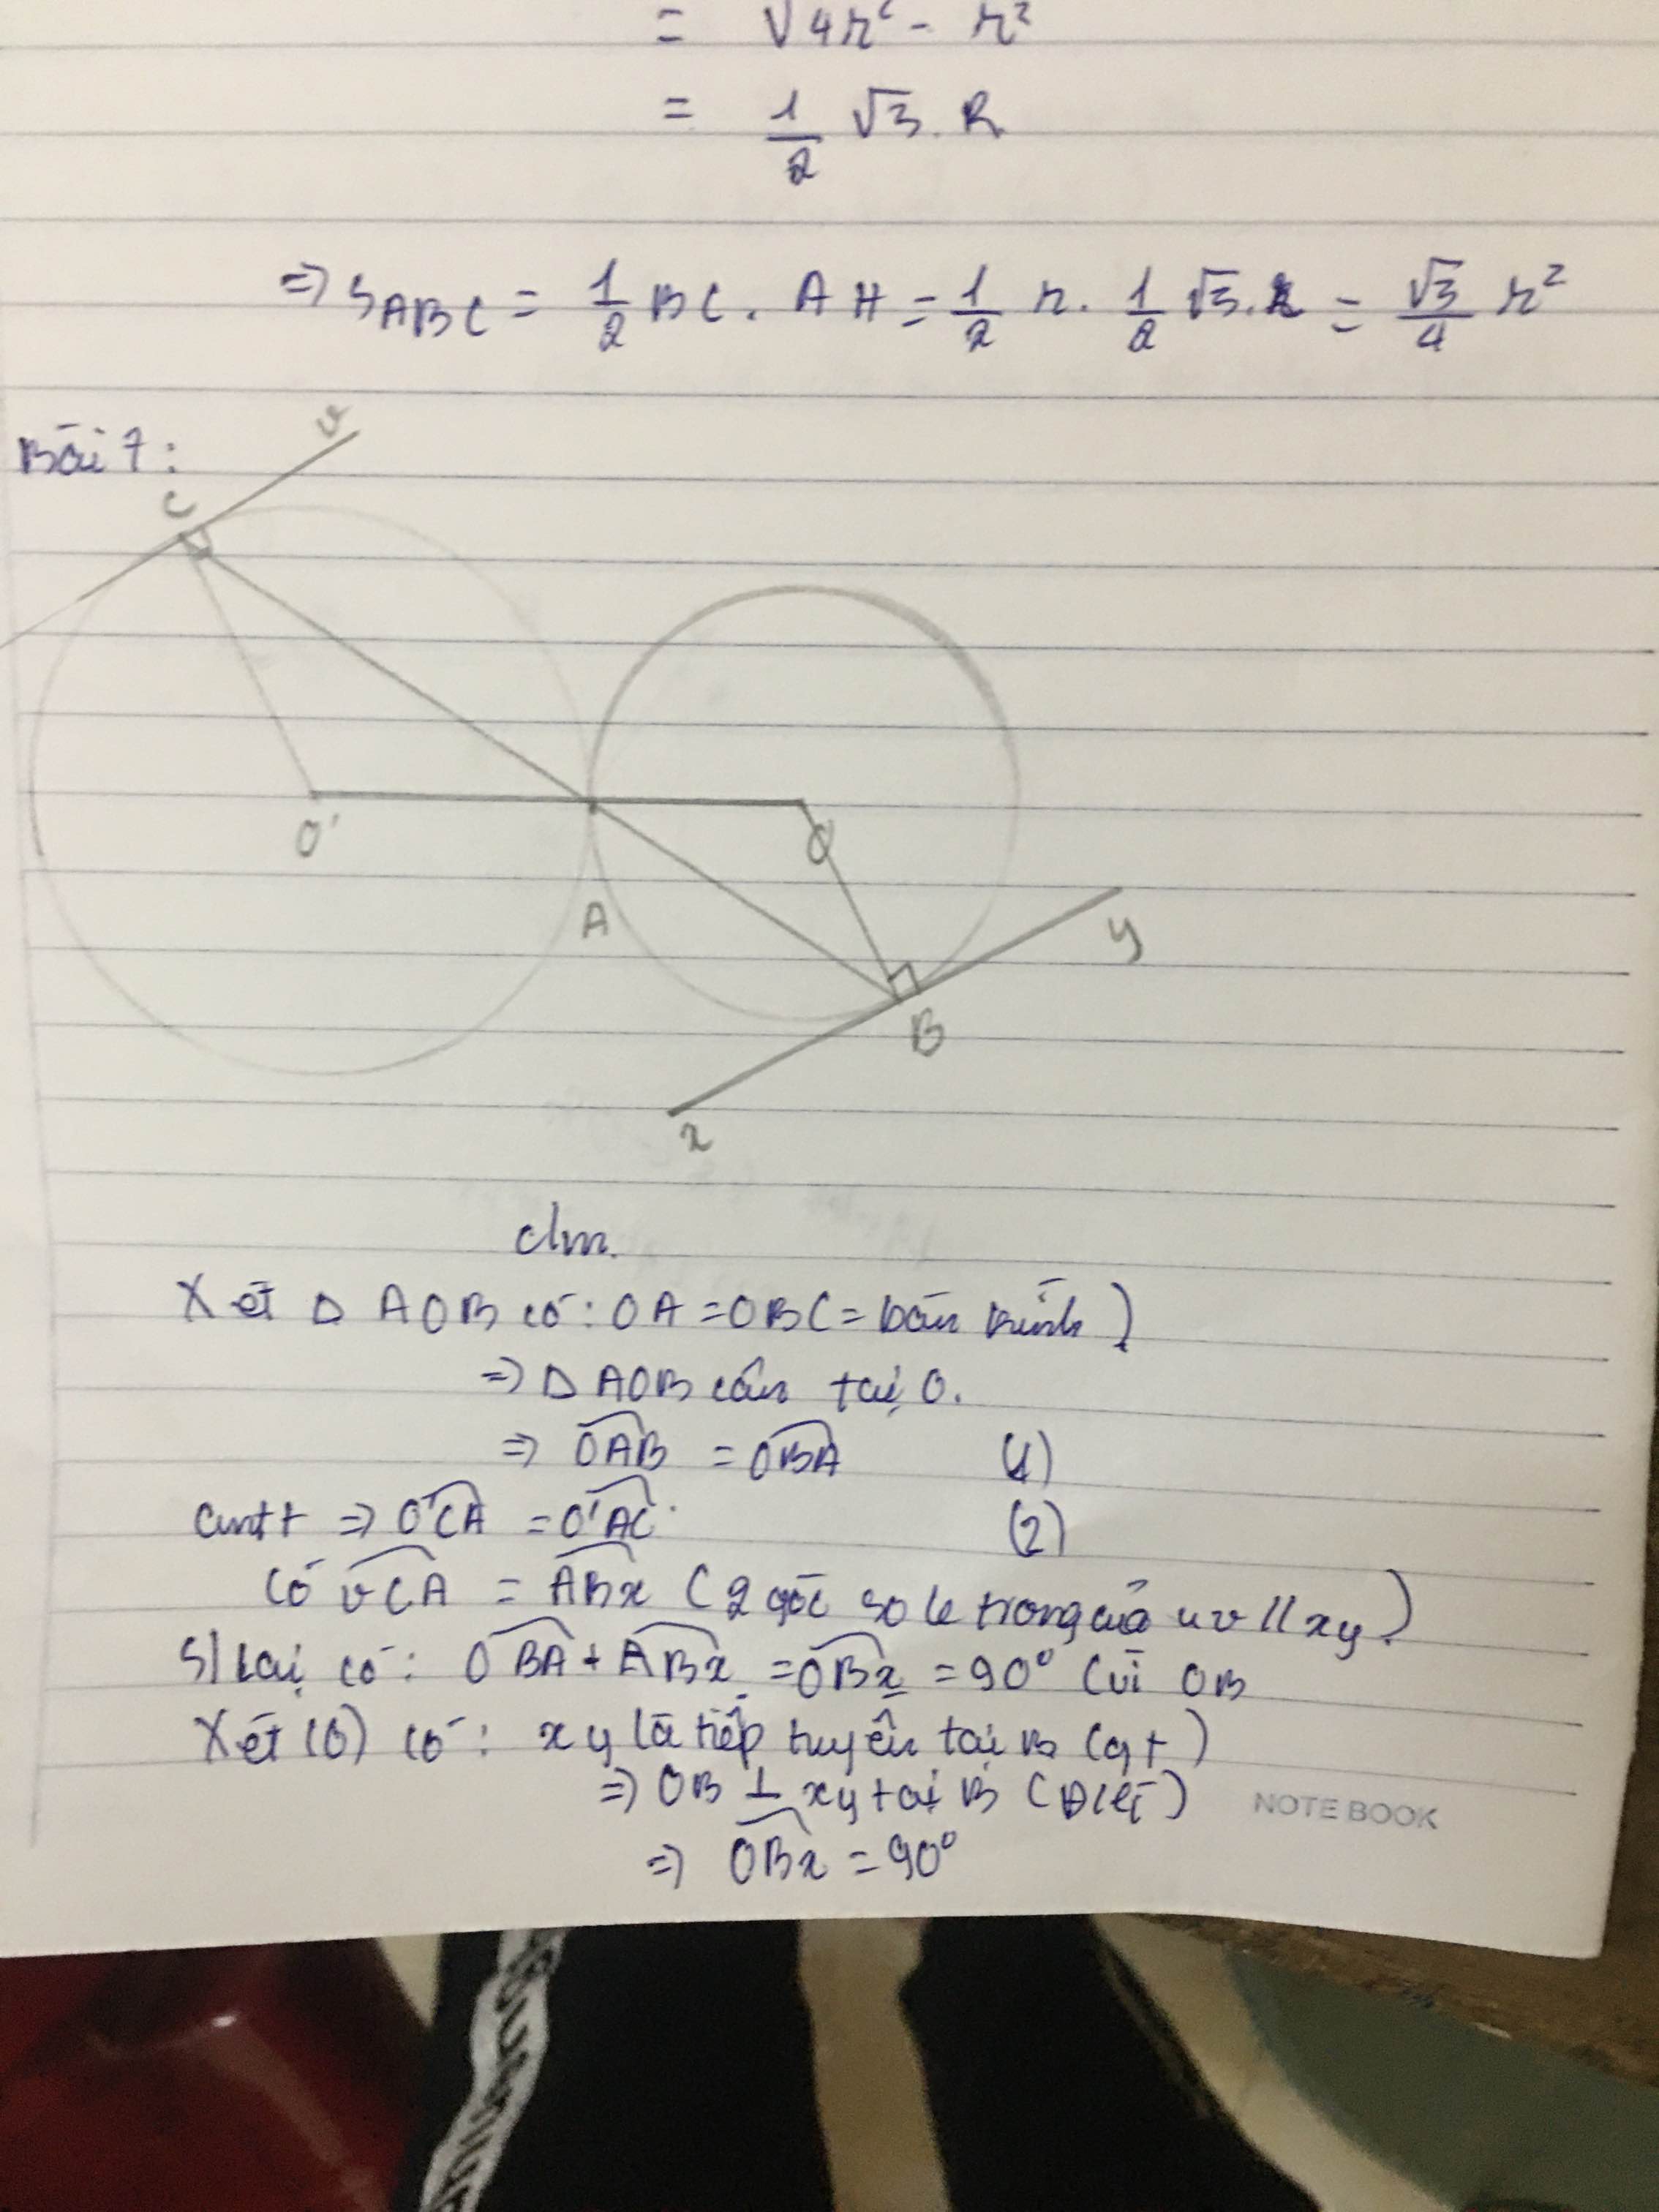 = √4r² - r²
= 1/2 √3. R
=> SABC = 1/2 BC. AH = 1/2 r. 1/2 √3. R = √3/4 r²
Bài 7:
v
C
O'
O
A
y
B
x
clm.
Xét Δ AOB có: OA = OB (= bán kính)
=> Δ AOB cân tại O.
=> OAB = OBA (1)
cmtt => O'CA = O'AC. (2)
Có vCA = ABx (2 góc so le trong của uv // xy)
S/ Lại có: OBA + ABx = OBx = 90° (vì OB
Xét (O) có: xy là tiếp tuyến tại B (gt)
=> OB ⊥ xy tại B
NOTE BOOK
=> OBx = 90°